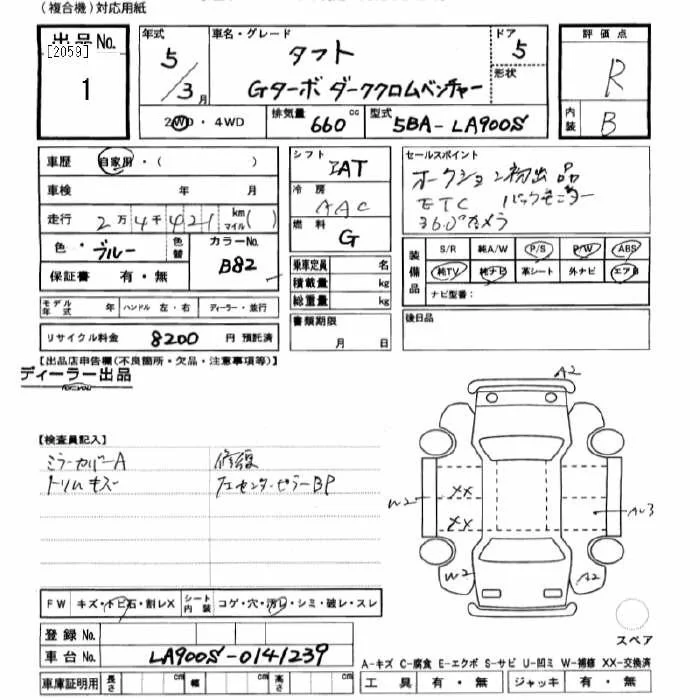 (複合機)対応用紙
出品No.
[2059]
1
年式 5/3月
車名・グレード タフト
Gターボ ダーククロムベンチャー
ドア 5
形状
評価点 R
内装 B
2WD・4WD
排気量 660 cc
型式 5BA-LA900S
車歴 自家用・( )
車検 年 月
走行 2万4千421 km マイル( )
色・ブルー 色替
カラーNo. B82
保証書 有・無
モデル年式 年 ハンドル 左・右 ディーラー・並行
リサイクル料金 8200 円 預託済
シフト IAT
冷房 AAC
燃料 G
乗車定員 名
積載量 kg
総重量 kg
書類期限 月 日
セールスポイント
オークション初出品
ETC バックモニター
360°カメラ
装備品
S/R 純A/W P/S P/W ABS
純TV 純ナビ 革シート 外ナビ エアB
ナビ型番:
後日品
【出品店申告欄(不良箇所・欠品・注意事項等)】
ディーラー出品
【検査員記入】
ミラーカバーA 修復
トリムキズ センターピラーBP
A2
W2 XX
XX
AW3
W2 A2
スペア
FW キズ・トビ石・割レX シート内装 コゲ・穴・汚レ・シミ・破レ・スレ
登録No.
車台No. LA900S-0141239
車庫証明用 長さ cm 幅 cm 高さ cm
A-キズ C-腐食 E-エクボ S-サビ U-凹ミ W-補修 XX-交換済
工具 有・無 ジャッキ 有・無